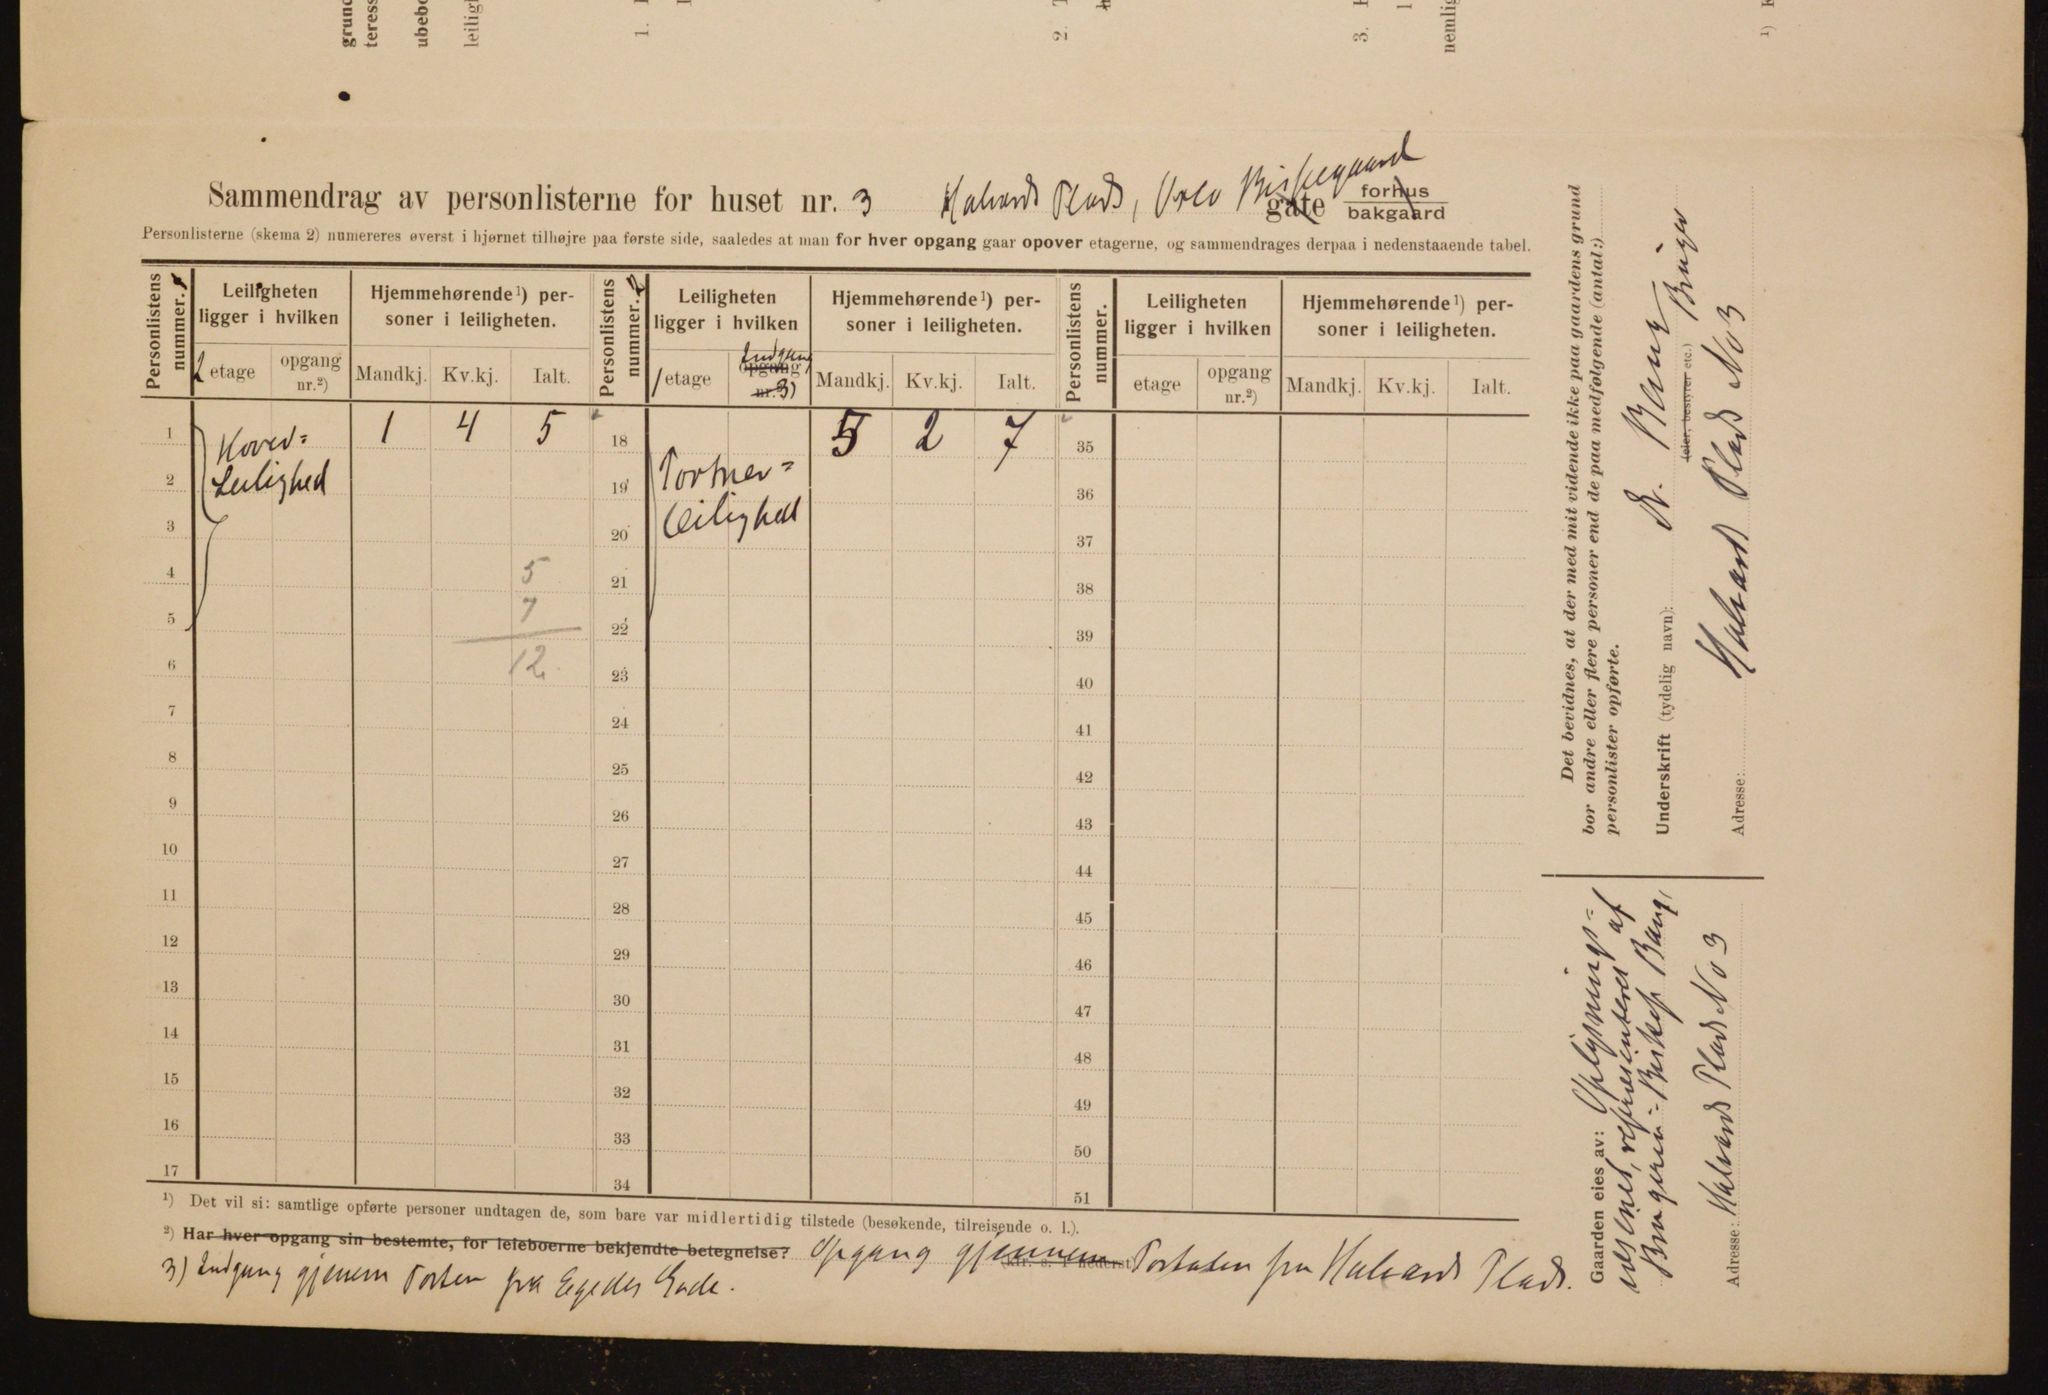 grund
teress
ubebo
leiligh
1.
2. T
3.
nemlig
1)
Sammendrag av personlisterne for huset nr. 3 Halvards Plads, Oslo Bispegaard gate forhus
bakgaard
Personlisterne (skema 2) numereres øverst i hjørnet tilhøjre paa første side, saaledes at man for hver opgang gaar opover etagerne, og sammendrages derpaa i nedenstaaende tabel.
Personlistens nummer. 1 Leiligheten ligger i hvilken Hjemmehørende¹) personer i leiligheten. Personlistens nummer. 2 Leiligheten ligger i hvilken Hjemmehørende¹) personer i leiligheten. Personlistens nummer. Leiligheten ligger i hvilken Hjemmehørende¹) personer i leiligheten.
2 etage opgang nr.²) Mandkj. Kv.kj. Ialt. 1 etage Indgang opgang nr. 3) Mandkj. Kv.kj. Ialt. etage opgang nr.²) Mandkj. Kv.kj. Ialt.
1 Hoved= 1 4 5 18 5 2 7 35
2 Leilighed 19 Portner= 36
3 20 Leilighed 37
4 5 21 38
5 7 22 39
6 12 23 40
7 24 41
8 25 42
9 26 43
10 27 44
11 28 45
12 29 46
13 30 47
14 31 48
15 32 49
16 33 50
17 34 51
¹) Det vil si: samtlige opførte personer undtagen de, som bare var midlertidig tilstede (besøkende, tilreisende o. l.).
²) Har hver opgang sin bestemte, for leieboerne bekjendte betegnelse? Opgang gjennem (kfr. s. 1 nederst) Portalen fra Halvards Plads.
3) Indgang gjenem Porten fra Egedes Gade.
Det bevidnes, at der med mit vidende ikke paa gaardens grund
bor andre eller flere personer end de paa medfølgende (antal:)
personlister opførte.
Underskrift (tydelig navn): A. Bang Bruger
(eier, bestyrer etc.)
Adresse: Halvards Plads No 3
Gaarden eies av: Oplysnings=
væsenet, repræsenteret af
Brugeren - Biskop Bang,
Adresse: Halvards Plads No 3